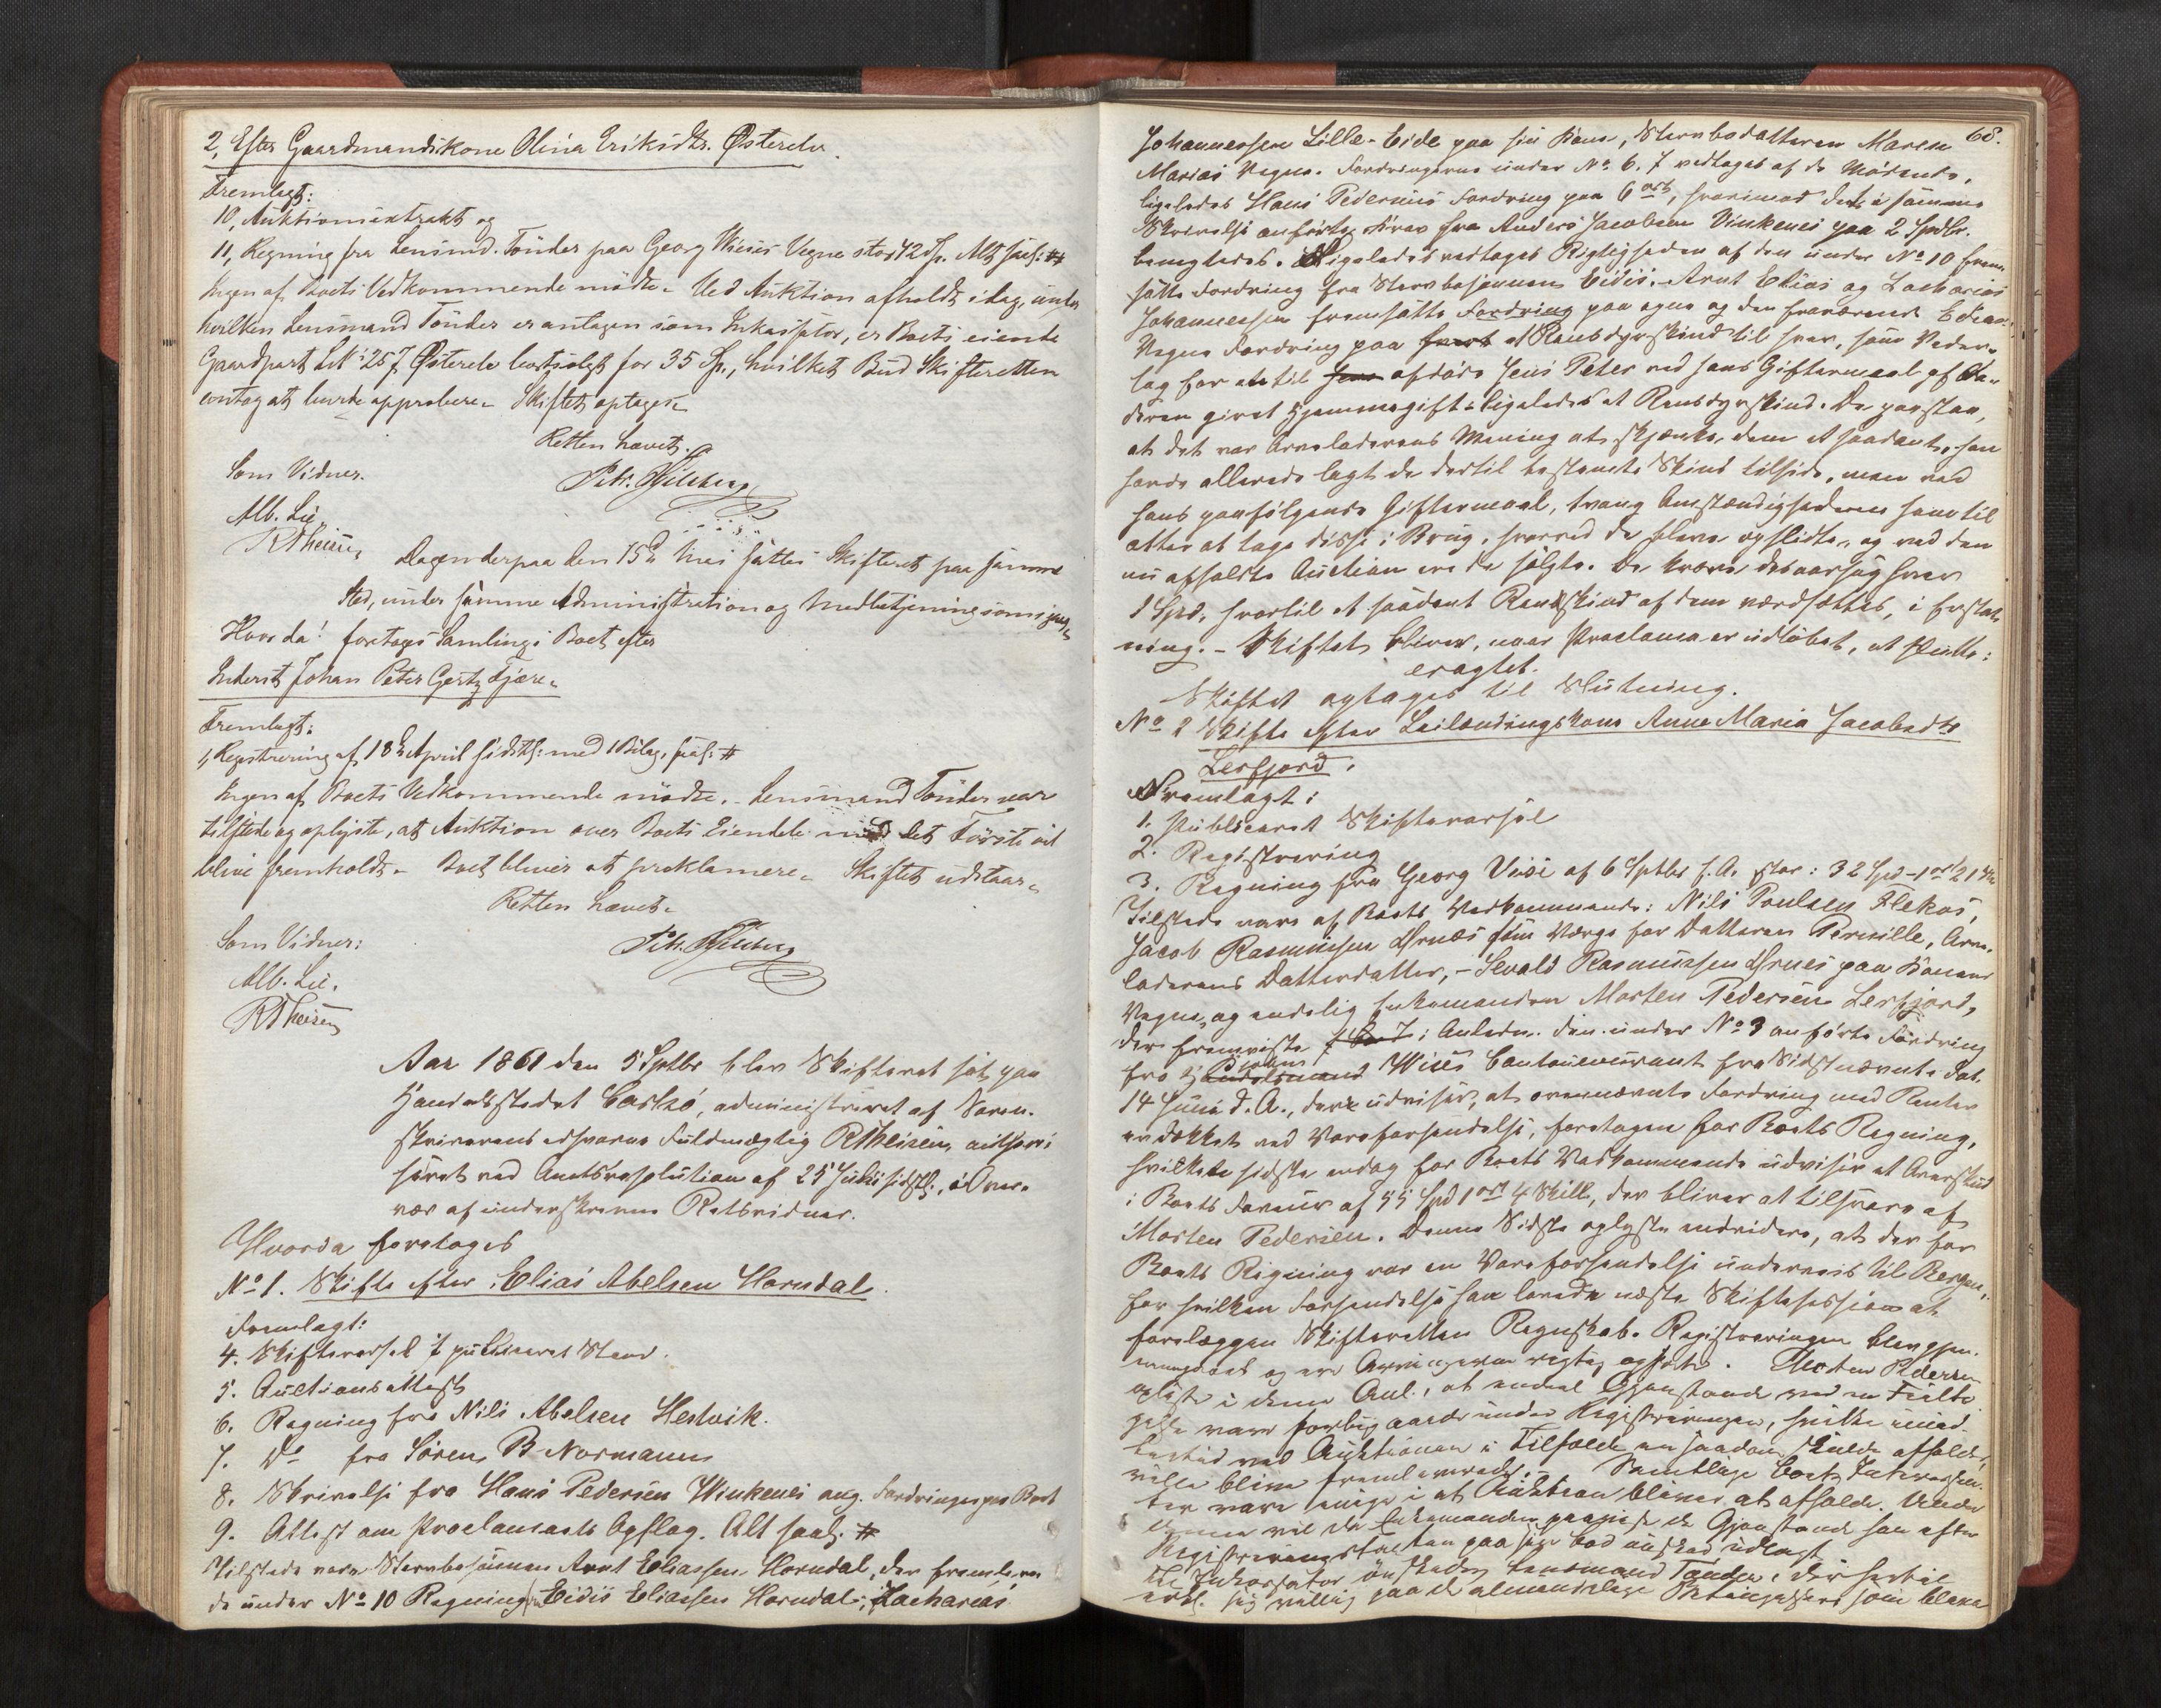 2, Efter Gaardmandskone Olina Eriksdtr. Østerelv.
Fremlagt:
10, Auktionsextrakt og
11, Regning fra Lensmd. Tönder paa Georg Wiesis Vegne stor 42 Sp. Alt saal: #
Ingen af Boets Vedkommende mødte. Ved Auktion afholdt idag, under
hvilken Lensmand Tönder er antagen som Inkassator, er Boets eiende
Gaardpart L.N. 257 Østerelv bortsolgt for 35 Sp., hvilket Bud Skifteretten
antog at burde approbere. Skiftet optages.
Retten hævet.
Som Vidner.
Alb. Lie
RTheisen
Dagen derpaa den 15de Mai sattes Skifteret paa samme
Sted, under samme Administration og Medbetjening som igaar.
Hvorda! foretoges Samling i Boet efter
Inderst Johan Peter Gertz Fjære.
Fremlagt:
1, Registrering af 18de April sidstl: med 1 Bilag, saal: #
Ingen af Boets Vedkommende mødte. Lensmand Tönder var
tilstede og oplyste, at Auktion over Boets Eiendele med det Første vil
blive fremholdt. Boet bliver at proklamere. Skiftet udstaar.
Retten hævet.
Som Vidner:
Alb. Lie.
RTheisen
Aar 1861 den 5 Sptbr blev Skifteret sat paa
Handelsstedet Carlsö, administreret af Soren-
skriverens edsvorne Fuldmægtig RTheisen, autori-
seret ved Amtsresolution af 25 Juli sidstl., i Over-
vær af underskrevne Retsvidner.
Hvorda foretoges
No 1. Skifte efter Elias Abelsen Horndal.
Fremlagt:
4. Skiftevarsel i publiceret Stand.
5. Auctionsattest
6. Regning fra Nils Abelsen Hestvik.
7. Do fra Søren B Normann
8. Skrivelse fra Hans Pedersen Winkenes ang. Fordringer paa Boet
9. Attest om Proclamaets Opslag. Alt saal. #
Tilstede vare Stervbosønnen Arnt Eliassen Horndal, der fremleve-
de under No 10 Regning fra Eidis Eliassen Horndal; Zacharias
68.
Johannessen Lille-Eide paa sin Kone, Stervbodatteren Maren
Marias Vegne. Fordringerne under No 6. 7 vedtages af de Mødende,
ligeledes Hans Pedersens Fordring paa 6 ort, hvorimod det i samme
Skrivelse anførte Krav fra Anders Jacobsen Vinkenes paa 2 Spdlr.
benegtedes. Ligeledes vedtages Rigtigheden af den under No 10 frem-
satte Fordring fra Stervbosønnen Eidis. Arnt Elias og Zacharias
Johannessen fremsatte Fordring paa egne og den fraværende Edias
Vegne Fordring paa 1 Rensdyrskind til hver, som Veder-
lag for et til afdøde Jens Peter ved hans Giftermaal af Fa-
deren givet Hjemmegift: ligeledes et Rensdyrskind. De paastaa,
at det var Arveladerens Mening at skjænke dem et saadant, han
havde allerede lagt de dertil bestemte Skind tilside, men ved
hans paafølgende Giftermaal, tvang Omstændighederne ham til
atter at tage disse i Brug, hvorved de bleve opslidte, og ved den
nu afholdte Auction ere de solgte. De kræve desaarsag hver
1 Spd, hvortil et saadant Renskind af dem værdsættes, i Erstat-
ning. - Skiftet bliver, naar Proclama er udløbet, at slutte:
eragtet.
Skiftet optages til Slutning.
No 2 Skifte efter Leilendingskone Anne Maria Jacobsdtr
Lerfjord.
Fremlagt:
1. Publiceret Skiftevarsel
2. Registrering
3. Regning fra Georg Viese af 6 Sptbr f. A. stor: 32 Spd - 1 ort 21 sk
Tilstede vare af Boets Vedkommende: Nils Poulsen Flekøs,
Jacob Rasmussen Ornæs som Værge for Datteren Pernille, Arve-
laderens Datterdatter, - Sevald Rasmussen Ornes paa Konens
Vegne, og endelig Enkemanden Morten Pedersen Lerfjord,
der fremviste i Anledn. den under No 3 anførte Fordring
fra Wiesis Contoucourant fra Sidstnævnte dat.
14 Juni d. A., der udviser, at ovennævnte Fordring med Renter
er dækket ved Vareforsendelse, foretagen for Boets Regning,
hvilken sidste endog for Boets Vedkommende udviser et Overskud
i Boets Faveur af 55 Spd 1 ort 4 Skill, der bliver at tilsvare af
Morten Pedersen. Denne Sidste oplyste endvidere, at der for
Boets Regning var en Vareforsendelse underveis til Bergen,
for hvilken Forsendelse han lovede næste Skiftesession at
forelægge Skifteretten Regnskab. Registreringen blev gjen-
nemgaaet og ere Arvingerne rigtig opførte. Morten Pedersen
oplyste i denne Anl., at endeel Gjenstande ved en Feilta-
gelse vare forbigaaede under Registreringen, hvilke imid-
lertid ved Auktionen i Tilfælde en saadan skulde afholdes,
ville blive fremleverede. - Samtlige Boets Interessen-
ter vare enige i at Auktion bliver at afholde. Under
denne vil da Enkemanden paavise de Gjenstande han efter
Registreringsforretn paa sin Lod ønsked udlagt
Til Inkassator ønskedes Lensmand Tönder, der hertil
erkl. sig villig paa de almindelige Betingelser som bleve